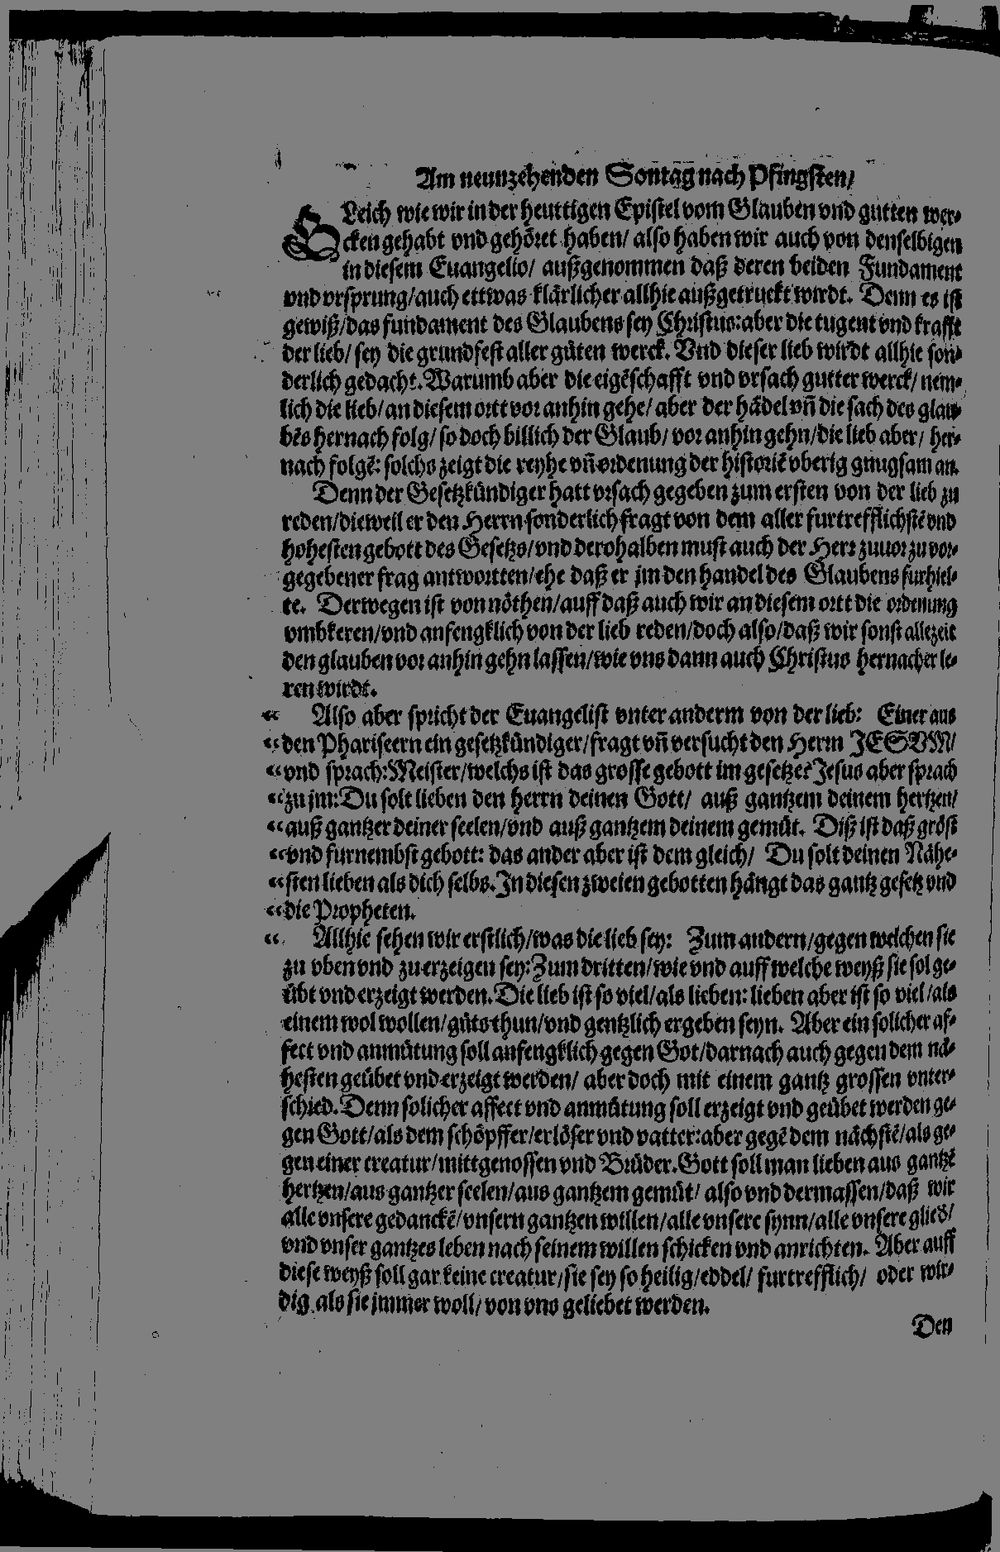 Am neunzehenden Sontag nach Pfingsten/
GLeich wie wir in der heuttigen Epistel vom Glauben vnd gutten wer-
cken gehabt vnd gehöret haben/ also haben wir auch von denselbigen
in diesem Euangelio/ außgenommen daß deren beiden Fundament
vnd vrsprung/ auch ettwas klärlicher allhie außgetruckt wirdt. Denn es ist
gewiß/ das fundament des Glaubens sey Christus: aber die tugent vnd krafft
der lieb/ sey die grundfest aller güten werck. Vnd dieser lieb wirdt allhie son-
derlich gedacht. Warumb aber die eigēschafft vnd vrsach gutter werck/ nem-
lich die lieb/ an diesem ortt vor anhin gehe/ aber der hādel vn̄ die sach des glau-
bēs hernach folg/ so doch billich der Glaub/ vor anhin gehn/ die lieb aber/ her-
nach folgē: solchs zeigt die reyhe vn̄ ordenung der historiē vberig gnugsam an.
Denn der Gesetzkündiger hatt vrsach gegeben zum ersten von der lieb zu
reden/ dieweil er den Herrn sonderlich fragt von dem aller furtrefflichstē vnd
hohesten gebott des Gesetzs/ vnd derohalben must auch der Herr zuuor zu vor-
gegebener frag antwortten/ ehe daß er jm den handel des Glaubens furhiel-
te. Derwegen ist von nöthen/ auff daß auch wir an diesem ortt die ordenung
vmbkeren/ vnd anfengklich von der lieb reden/ doch also/ daß wir sonst allezeit
den glauben vor anhin gehn lassen/ wie vns dann auch Christus hernacher le-
ren wirdt.
“ Also aber spricht der Euangelist vnter anderm von der lieb: Einer aus
“ den Phariseern ein gesetzkündiger/ fragt vn̄ versucht den Herrn JESVM/
“ vnd sprach: Meister/ welchs ist das grosse gebott im gesetze? Jesus aber sprach
“ zu jm: Du solt lieben den herrn deinen Gott/ auß gantzem deinem hertzen/
“ auß gantzer deiner seelen/ vnd auß gantzem deinem gemüt. Diß ist daß gröst
“ vnd furnembst gebott: das ander aber ist dem gleich/ Du solt deinen Nähe-
“ sten lieben als dich selbs. In diesen zweien gebotten hängt das gantz gesetz vnd
“ die Propheten.
“ Allhie sehen wir erstlich/ was die lieb sey: Zum andern/ gegen welchen sie
zu vben vnd zu erzeigen sey: Zum dritten/ wie vnd auff welche weyß sie sol ge-
übt vnd erzeigt werden. Die lieb ist so viel/ als lieben: lieben aber ist so viel/ als
einem wol wollen/ güts thun/ vnd gentzlich ergeben seyn. Aber ein solicher af-
fect vnd anmütung soll anfengklich gegen Got/ darnach auch gegen dem nä-
hesten geübet vnd erzeigt werden/ aber doch mit einem gantz grossen vnter-
schied. Denn solicher affect vnd anmütung soll erzeigt vnd geübet werden ge-
gen Gott/ als dem schöpffer/ erlöser vnd vatter: aber gegē dem nächstē/ als ge-
gen einer creatur/ mittgenossen vnd Brüder. Gott soll man lieben aus gantzē
hertzen/ aus gantzer seelen/ aus gantzem gemüt/ also vnd dermassen/ daß wir
alle vnsere gedanckē/ vnsern gantzen willen/ alle vnsere synn/ alle vnsere glied/
vnd vnser gantzes leben nach seinem willen schicken vnd anrichten. Aber auff
diese weyß soll gar keine creatur/ sie sey so heilig/ eddel/ furtrefflich/ oder wir-
dig als sie jmmer woll/ von vns geliebet werden.
Den